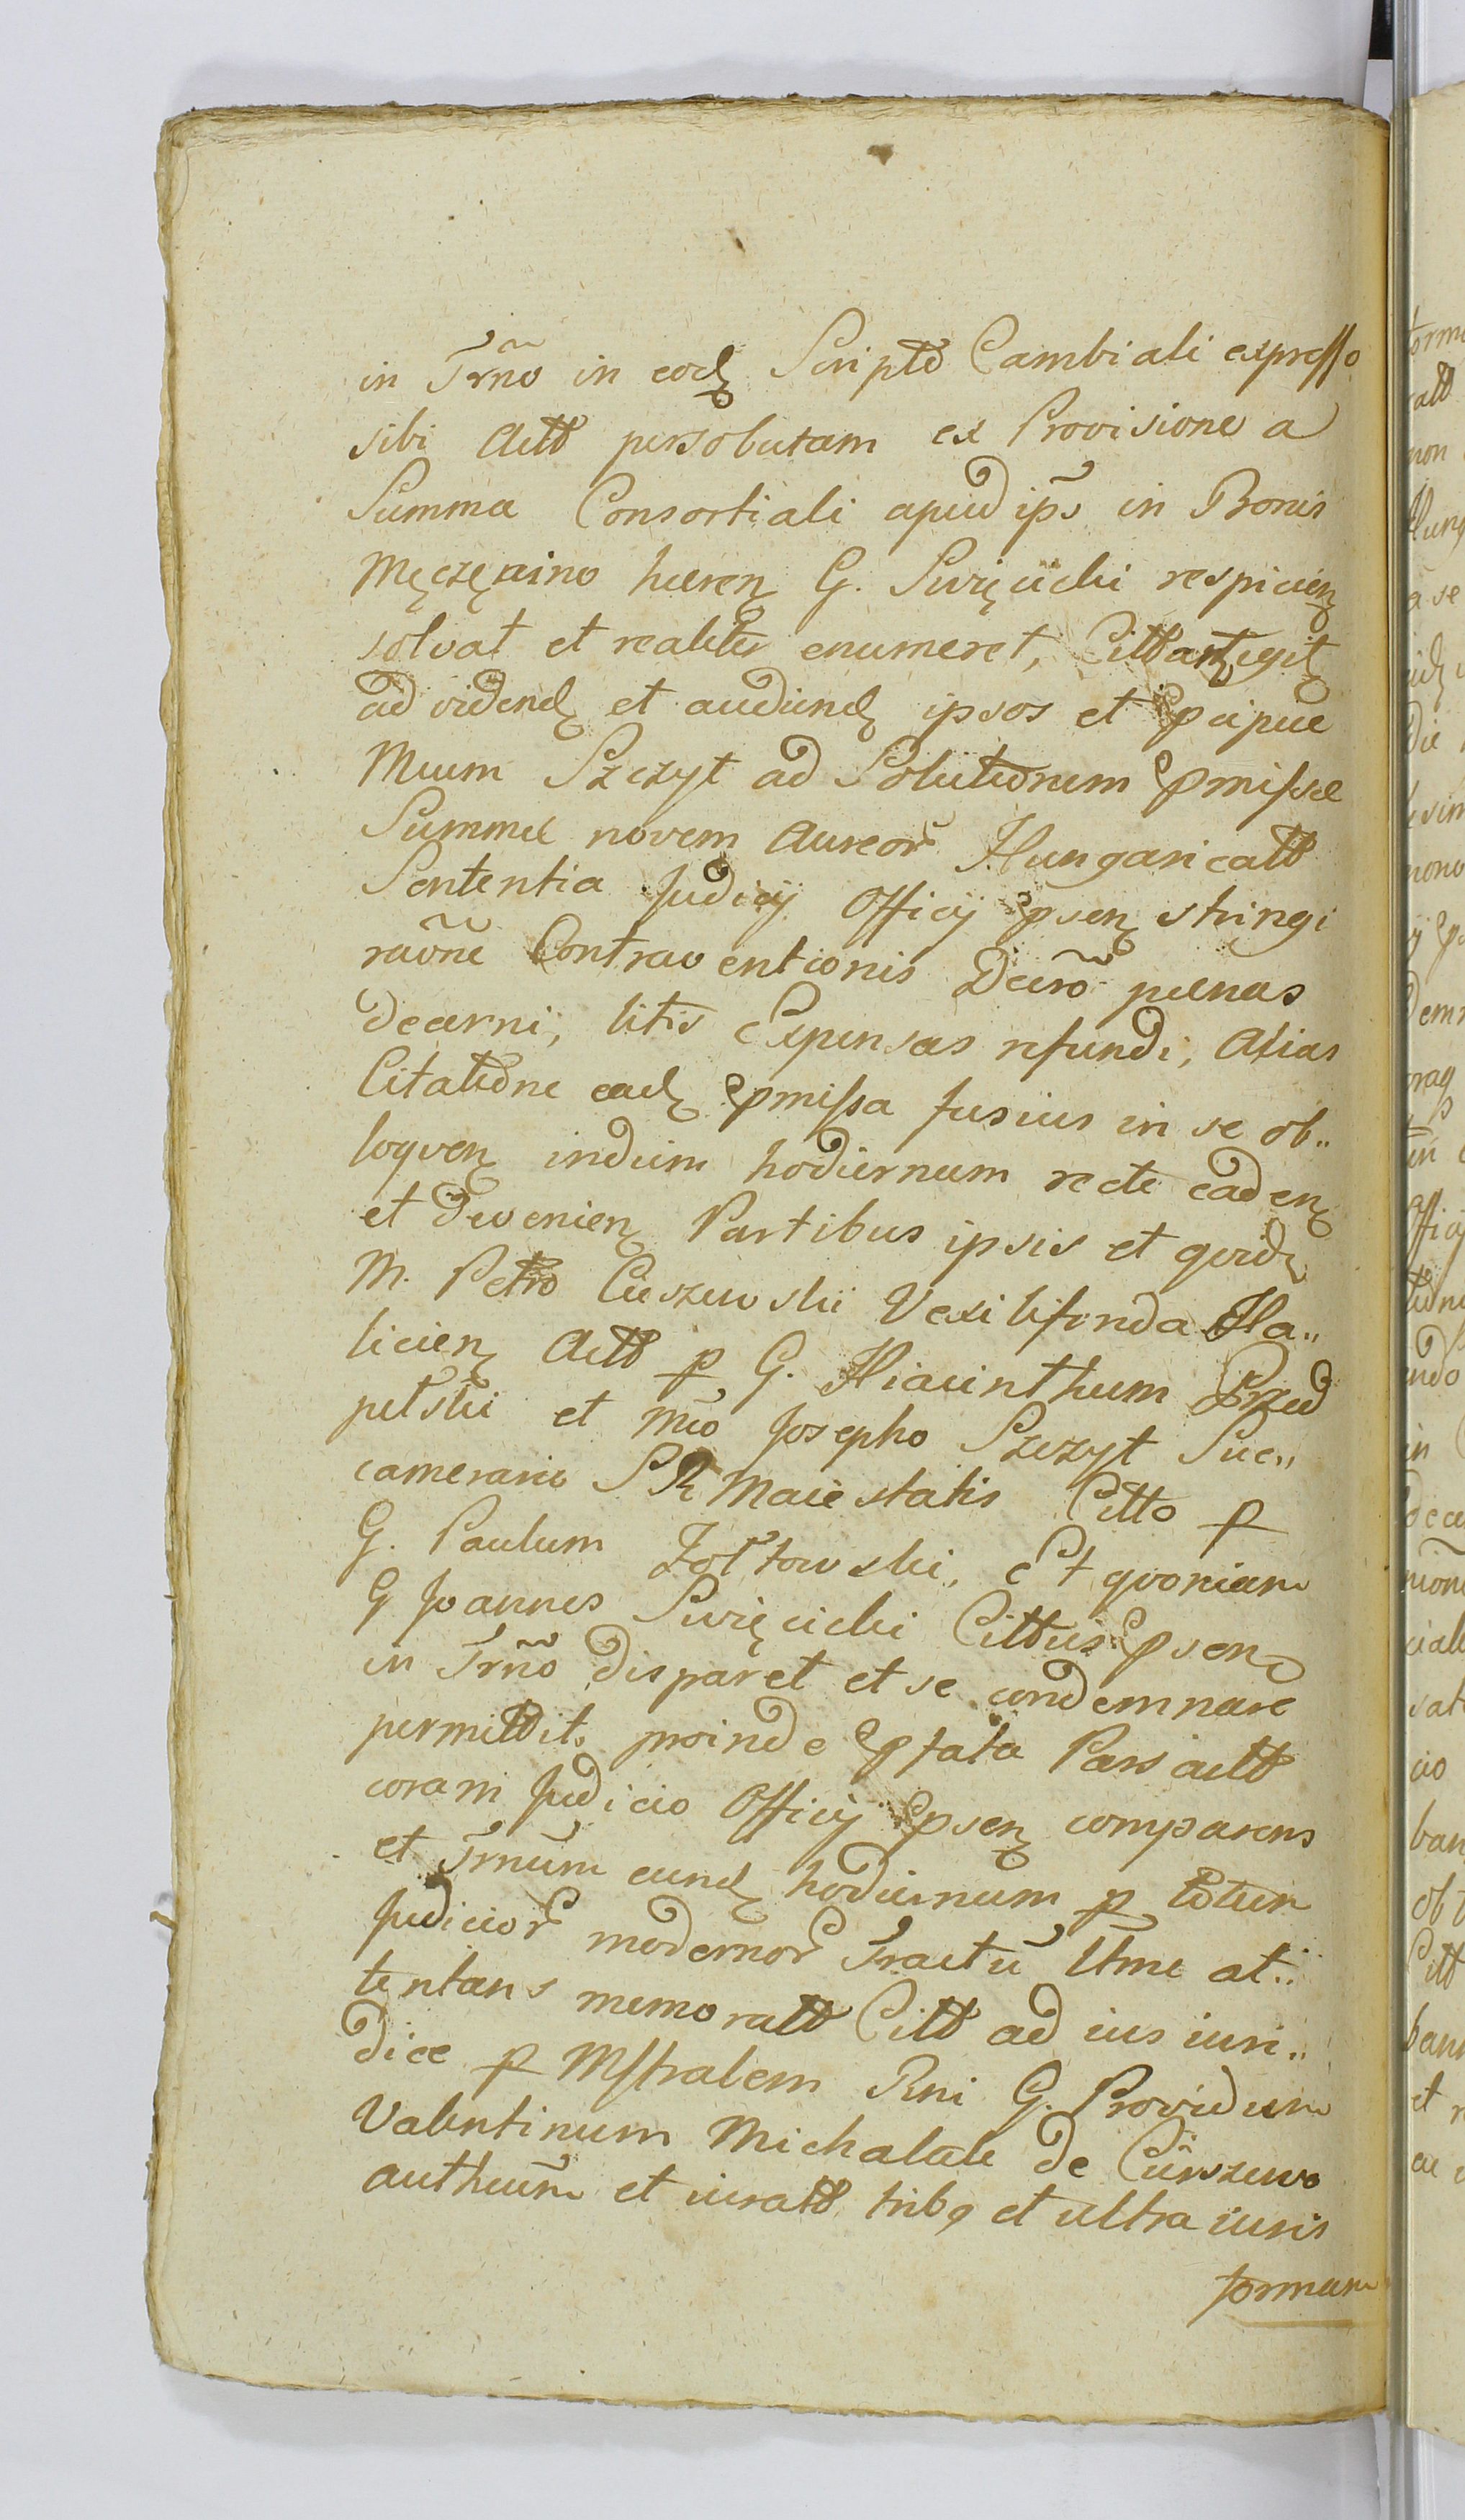 in Trño in eodꝫ Scripto Cambiali expresso
sibi Actto persolutam ex Provisione a
Summa Consortiali apud ip̃s in Bonis
Męczęnino hæren G. Swięcicki respicien
solvat et realiter enumeret, Citt
ad videndꝫ et audiendꝫ ipsos et Pcipue
Mcum Szczyt ad Solutionem Pmissæ
Summæ novem Aureor Hungaricatt
Sententia Judicij Officij Psen stringi
raõne Contraventionis Decrõ pænas
decerni, litis Expensas refundi, Alias
Citatione eadꝫ Pmissa fusius in se ob..
loqven indiem hodiernum recte caden
et devenien Partibus ipsis et qvidꝫ
M. Petro Cieszewski Vexiliferida Ha..
licien Actt p G. Hiacinthum Przed
petski et Mco Josepho Szczyt Suc..
camerario S R Maiestatis Citto p
G. Paulum Zołtowski, Et qvoniam
G Joannes Swięcicki Cittus Psen
in Trño disparet et se condemnare
permittit, proinde Pfata Pars actt
coram Judicio Officij Psen comparens
et Trnum eundꝫ hodiernum p totum
Judicior modernor Tractũ ltme at..
tentans memoratt Citt ad ius iuri..
dice p Mstralem Rni G. Providum
Valentinum Michalak de Cieszewo
authũm et iuratt tribq et ultra iuris
formam